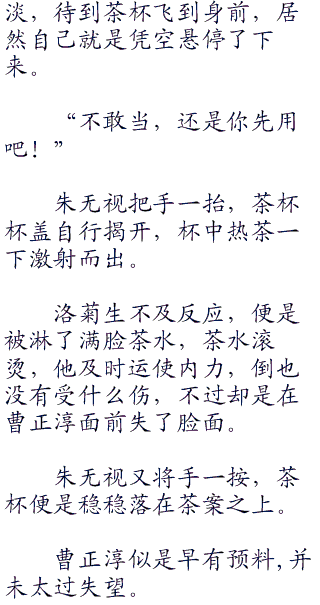 淡，待到茶杯飞到身前，居
然自己就是凭空悬停了下
来。
“不敢当，还是你先用
吧！”
朱无视把手一抬，茶杯
杯盖自行揭开，杯中热茶一
下激射而出。
洛菊生不及反应，便是
被淋了满脸茶水，茶水滚
烫，他及时运使内力，倒也
没有受什么伤，不过却是在
曹正淳面前失了脸面。
朱无视又将手一按，茶
杯便是稳稳落在茶案之上。
曹正淳似是早有预料,并
未太过失望。